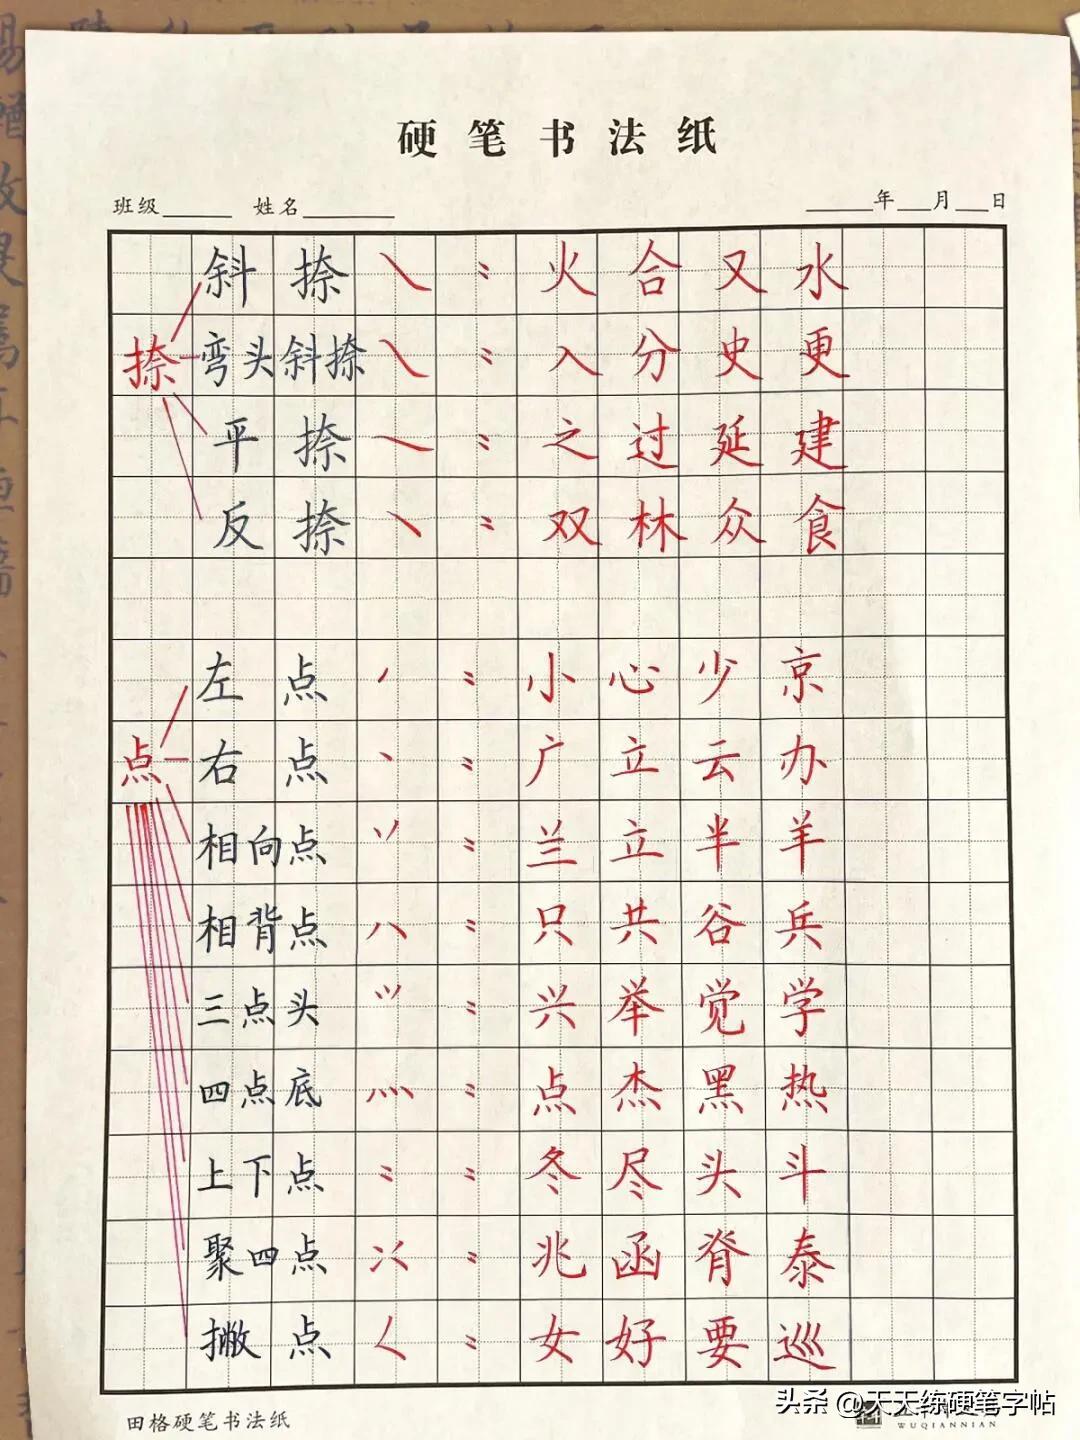 硬笔书法纸
班级 姓名 年 月 日
捺
斜捺 火合又水
弯头斜捺 入分史更
平捺 之过延建
反捺 双林众食
点
左点 小心少京
右点 广立云办
相向点 兰立半羊
相背点 只共谷兵
三点头 兴举觉学
四点底 灬 点杰黑热
上下点 冬尽头斗
聚四点 兆函脊泰
撇点 女好要巡
田格硬笔书法纸
WUQIANNIAN
头条 @天天练硬笔字帖